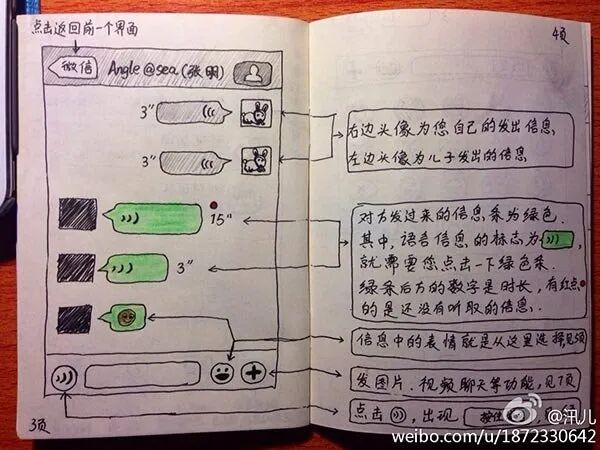 点击返回前一个界面
微信
Angle@sea(张明)
3"
3"
15"
3"
3页
4页
右边头像为您自己的发出信息,
左边头像为儿子发出的信息
对方发过来的信息条为绿色.
其中,语音信息的标志为
就需要您点击一下绿色条.
绿条后方的数字是时长,有红点
的是还没有听取的信息.
信息中的表情就是从这里选择,见
发图片.视频聊天等功能,见7页
点击 ,出现 按住
@汛儿
weibo.com/u/1872330642